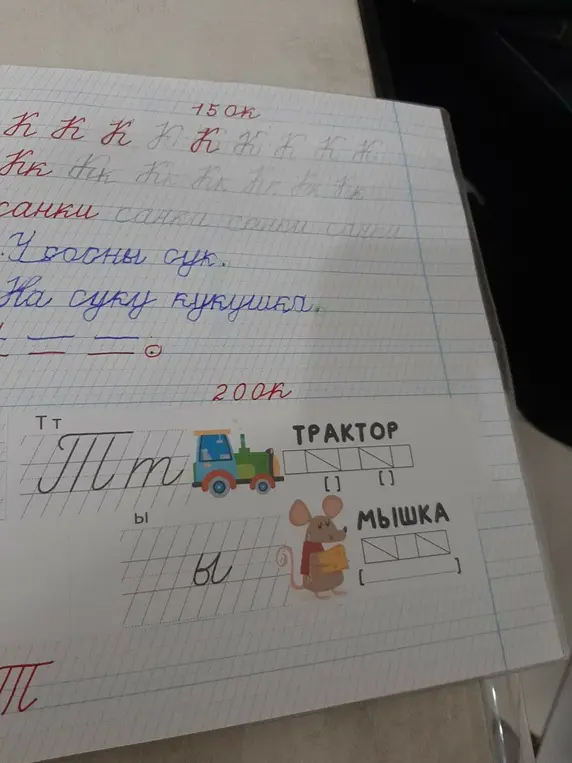 15 ок
К К К К К К К К К
Кк Кк Кк Кк Кк Кк Кк
санки санки санки санки
У сосны сук.
На суку кукушка.
20 ок
Тт
Тт
ТРАКТОР
[ ] [ ]
ы
ы
МЫШКА
[ ]
Т